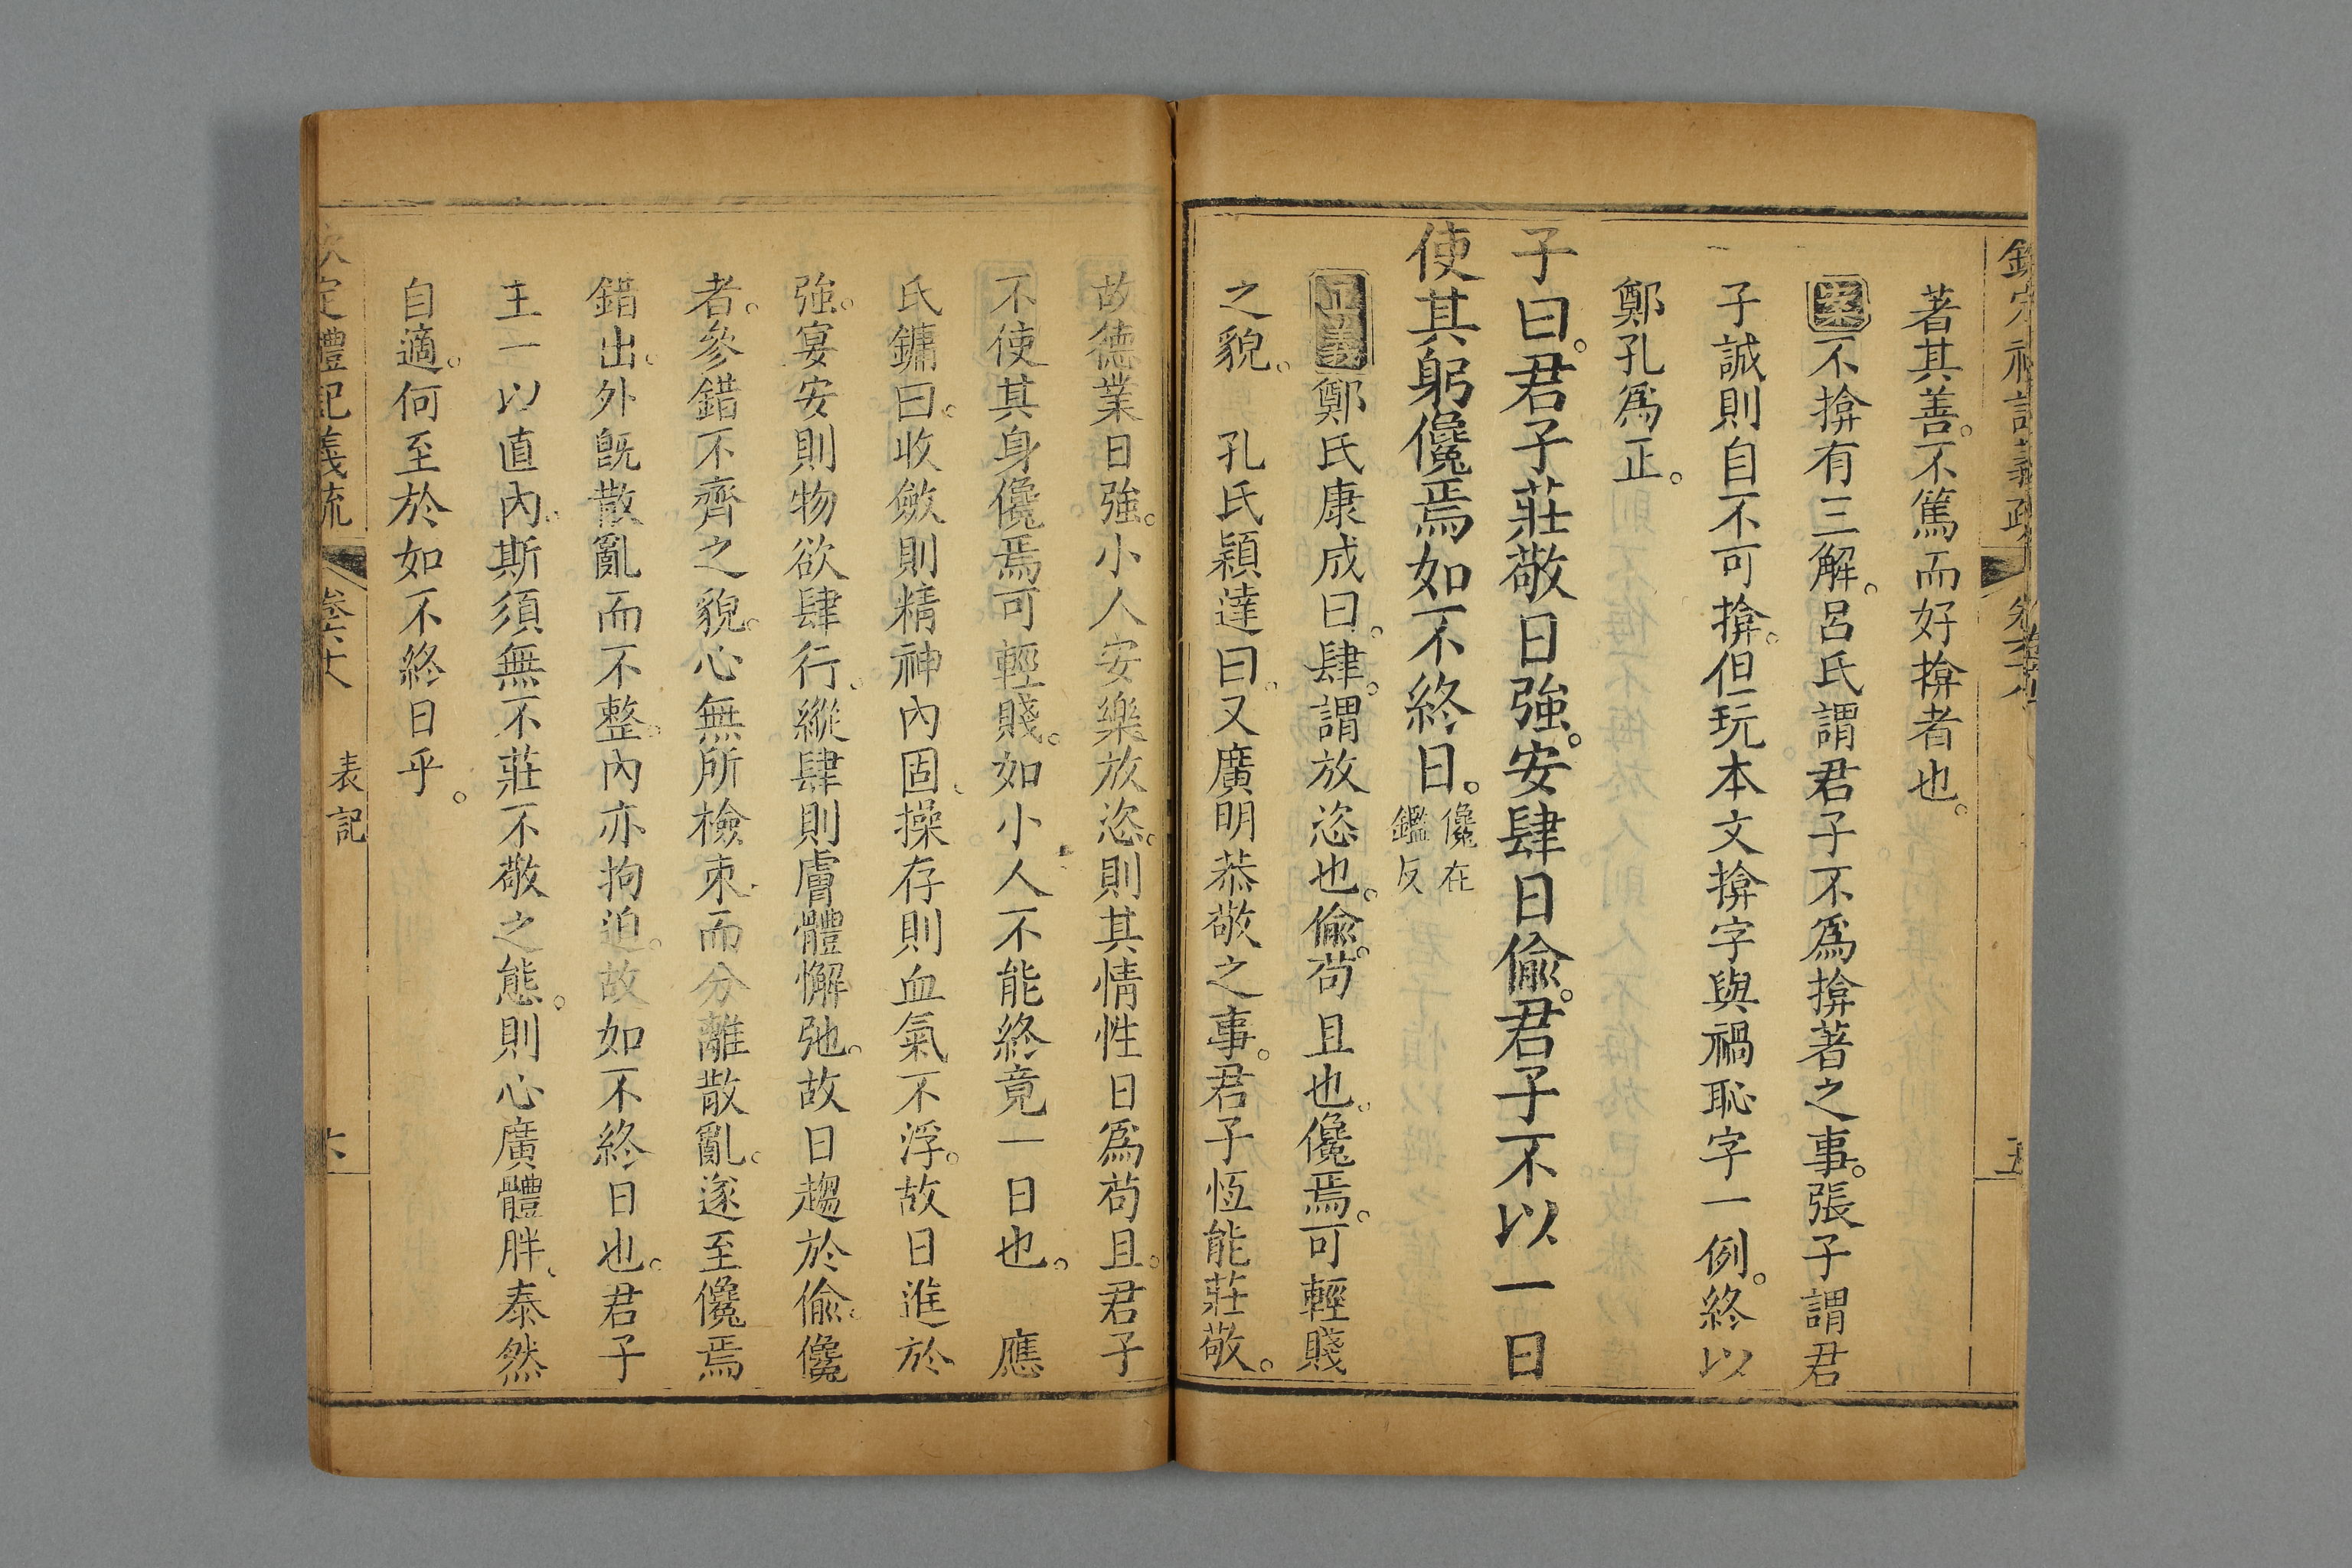 著其善。不篤而好揜者也。
案不揜有三解。呂氏謂君子不爲揜著之事。張子謂君
子誠則自不可揜。但玩本文揜字與禍恥字一例。終以
鄭孔爲正。
子曰。君子莊敬日強。安肆日偷。君子不以一日
使其躬儳焉如不終日。儳在鑑反
正義鄭氏康成曰。肆。謂放恣也。偷。苟且也。儳焉。可輕賤
之貌。 孔氏穎達曰。又廣明恭敬之事。君子恆能莊敬。
故德業日強。小人安樂放恣。則其情性日爲苟且。君子
不使其身儳焉可輕賤。如小人不能終竟一日也。 應
氏鏞曰。收斂則精神內固、操存則血氣不浮。故日進於
強。宴安則物欲肆行。縱肆則膚體懈弛。故日趨於偷。儳
者。參錯不齊之貌。心無所檢束、而分離散亂。遂至儳焉
錯出。外旣散亂而不整。內亦拘迫。故如不終日也。君子
主一以直內、斯須無不莊不敬之態。則心廣體胖、泰然
自適。何至於如不終日乎。
欽定禮記義疏 卷六十八 表記 六